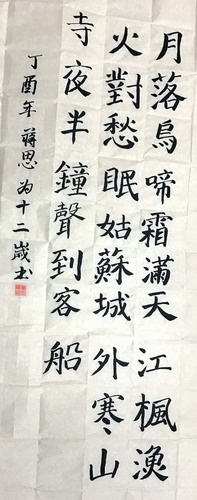 月落烏啼霜滿天江楓漁
火對愁眠姑蘇城外寒山
寺夜半鐘聲到客船
丁酉年蔣恩为十二歲书